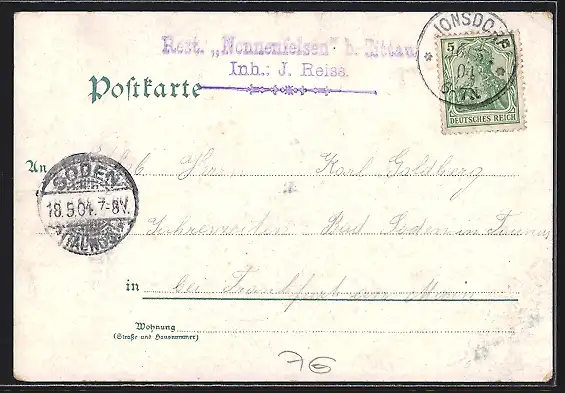 Rest. „Nonnenfelsen" b. Zittau
Inh.: J. Reiss.
JONSDORF
04
5 5
DEUTSCHES REICH
Postkarte
An
Herrn Karl Goldberg
SODEN
18.5.04. 7-8V.
(TAUNUS)
Bad Soden im Taunus
in bei Frankfurt am Main
Wohnung
(Straße und Hausnummer)
76